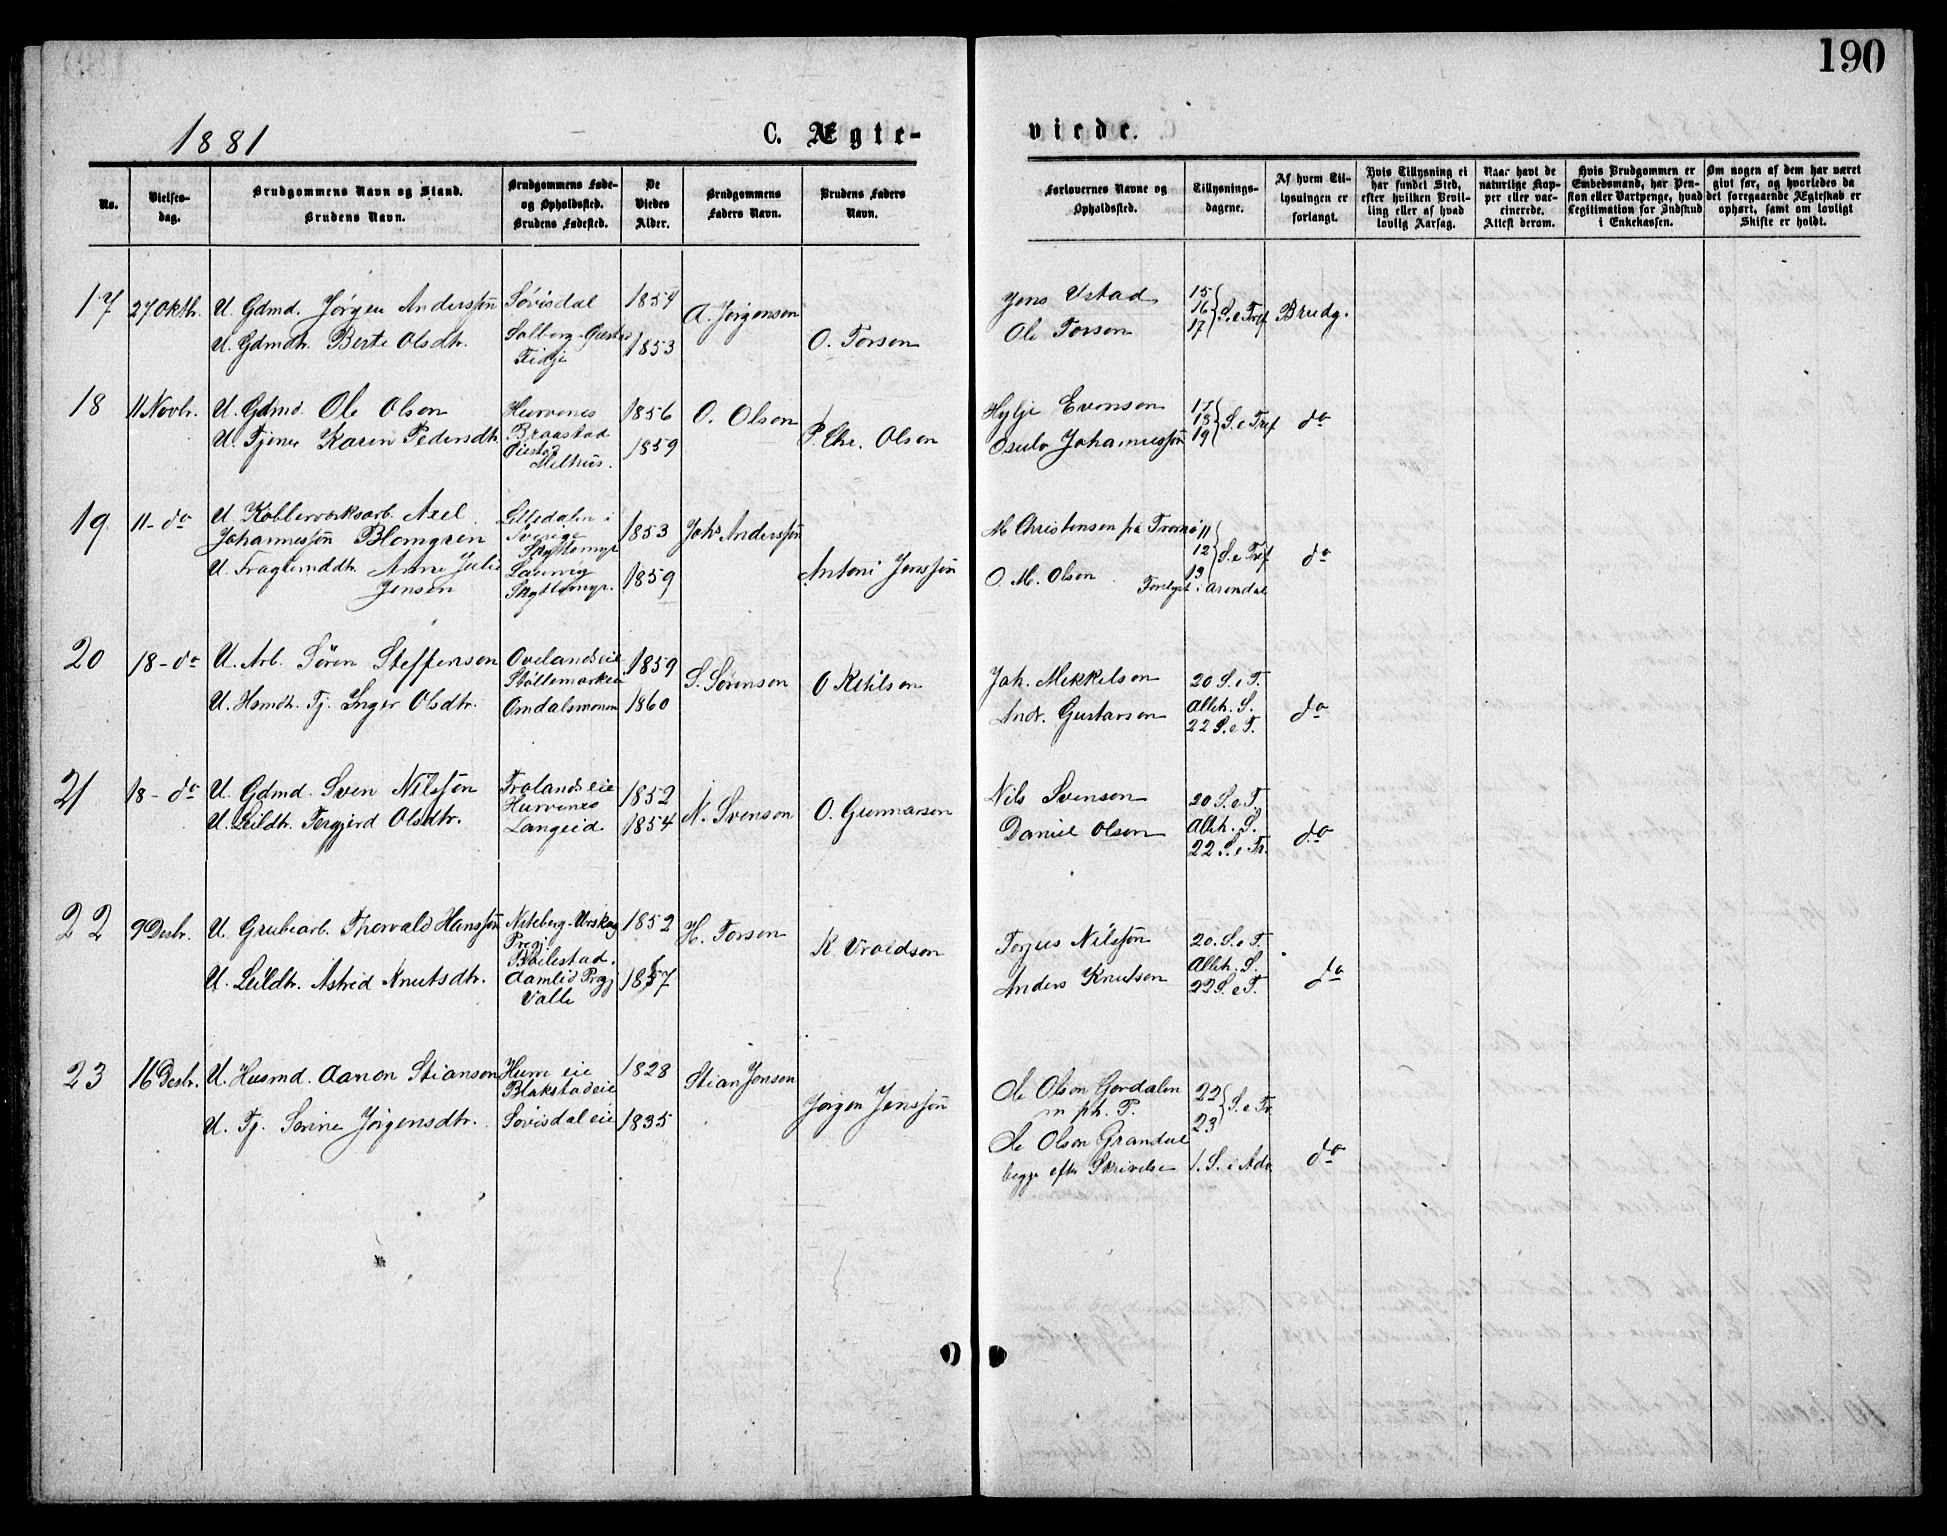 190
1881
C. Ægte-
viede.
No.
Vielses-
dag.
Brudgommens Navn og Stand.
Brudens Navn.
Brudgommens Føde-
og Opholdssted.
Brudens Fødested.
De
Viedes
Alder.
Brudgommens
Faders Navn.
Brudens Faders
Navn.
Forlovernes Navne og
Opholdssted.
Tillysnings-
dagene.
Af hvem Til-
lysningen er
forlangt.
Hvis Tillysning ei
har fundet Sted,
efter hvilken Bevil-
ling eller af hvad
lovlig Aarsag.
Naar havt de
naturlige Kop-
per eller vac-
cinerede.
Attest derom.
Hvis Brudgommen er
Embedsmand, har Pen-
sion eller Vartpenge, hvad
Legitimation for Indskud
i Enkekassen.
Om nogen af dem har været
gift før, og hvorledes da
det foregaaende Ægteskab er
ophørt, samt om lovligt
Skifte er holdt.
17
27 Oktb.
U. Gdmd. Jørgen Anderssøn
U. Gdmdtr. Berte Olsdtr.
Sørisdal
Solberg
1854
1853
A. Jørgenson
O. Torson
Jens Ustad
Ole Torson
15
16
17
S. e Tref
Brudg.
18
11 Novbr.
U. Gdmd. Ole Olson
U. Tjener Karen Pedersdtr
Hurvenes
Braastad
Øiestad
Melhus.
1856
1859
O. Olson
P. Chr. Olson
Hylje Evenson
Osulv Johannessøn
17
18
19
S. e Tref
do
19
11 - do
U. Kobberværksarb. Axel
Johannessøn Blomgren
U. Fragtemddtr. Anne Julie
Jensen
Sverige
Skyttemyr
Laurvig
Skyttemyr.
1853
1859
Johs Anderssøn
Antoni Jenssøn
M. Christensen på Tromø
O. M. Olson
11
12
13
S. e Tref
Forlyst i Arendal
do
20
18 - do
U. Arb. Søren Steffenson
U. Hsmdtr. Tj. Inger Olsdtr.
Ovelandseie
Støllemarkeie
Omdalsmonen
1859
1860
S. Sørenson
O Ketilson
Joh. Mikkelson
Andr. Gustavson
20 S. e T.
Alleh. S.
22 S. e T.
do
21
18 - do
U. Gdmd. Sven Nilssøn
U. Leildtr. Torgjerd Olsdtr.
Frolandseie
Hurvenes
Langeid
1852
1854
N. Svenson
O. Gunnarson
Nils Svenson
Daniel Olson
20 S. e T.
Alleh. S.
22 S. e Tr.
do
22
9 Desbr.
U. Grubearb. Thorvald Hanssøn
U. Leildtr. Astrid Knutsdtr.
Niteberg-Urskog
Prgj.
Bøilestad.
Aamlid Prgj
Valle
1852
1857
H. Torson
K. Vraldson
Torjus Nilssøn
Anders Knutson
20. S. e T.
Alleh. S.
22 S. e T.
do
23
16 Desbr.
U. Husmd. Aanon Stianson
U. Tj. Serine Jørgensdtr.
Hurre eie
Blakstadeie
Sørisdaleie
1828
1835
Stian Jonson
Jørgen Jenssøn
Ole Olson Gordalen
Ole Olson Grandal
begge efter Skrivelse
22
23
S. e Tr
1. S. i Adv.
do